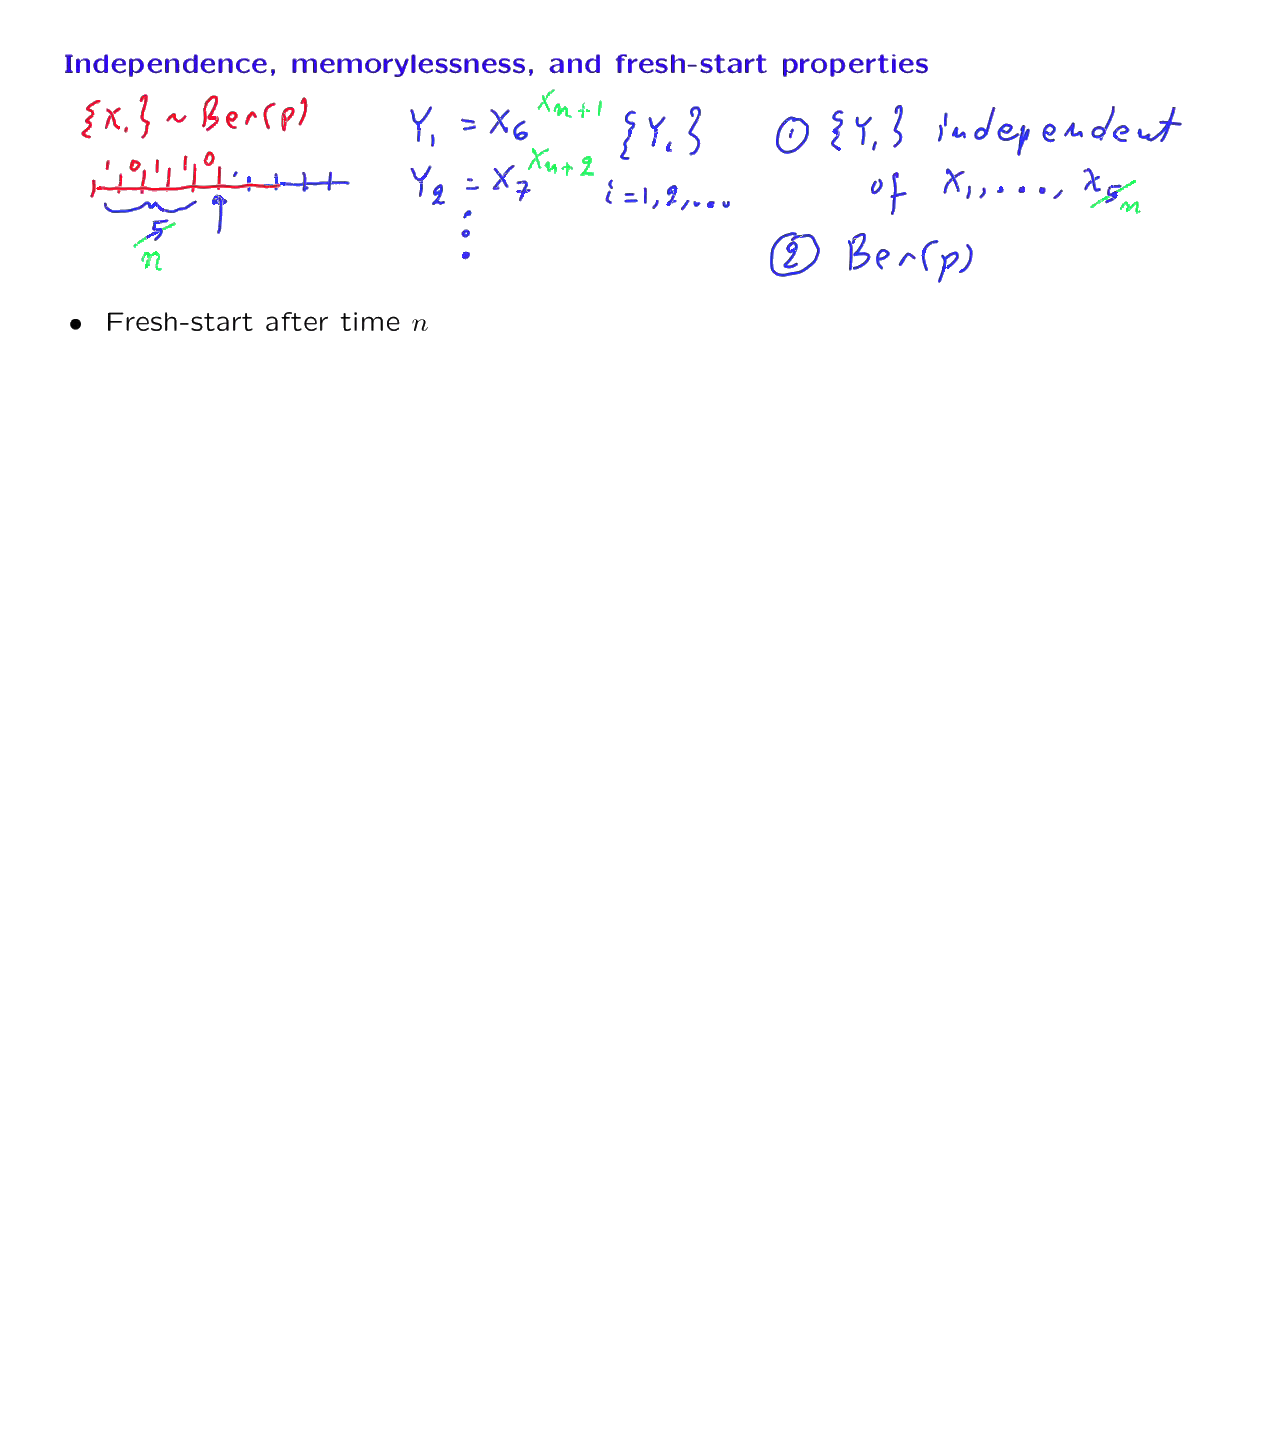 Independence, memorylessness, and fresh-start properties
{X_i} ~ Ber(p)
1 0 1 1 1 0
5 n
Y_1 = X_6 X_{n+1}
Y_2 = X_7 X_{n+2}
{Y_i}
i = 1, 2, ...
① {Y_i} independent
of X_1, ..., X_5 n
② Ber(p)
• Fresh-start after time n